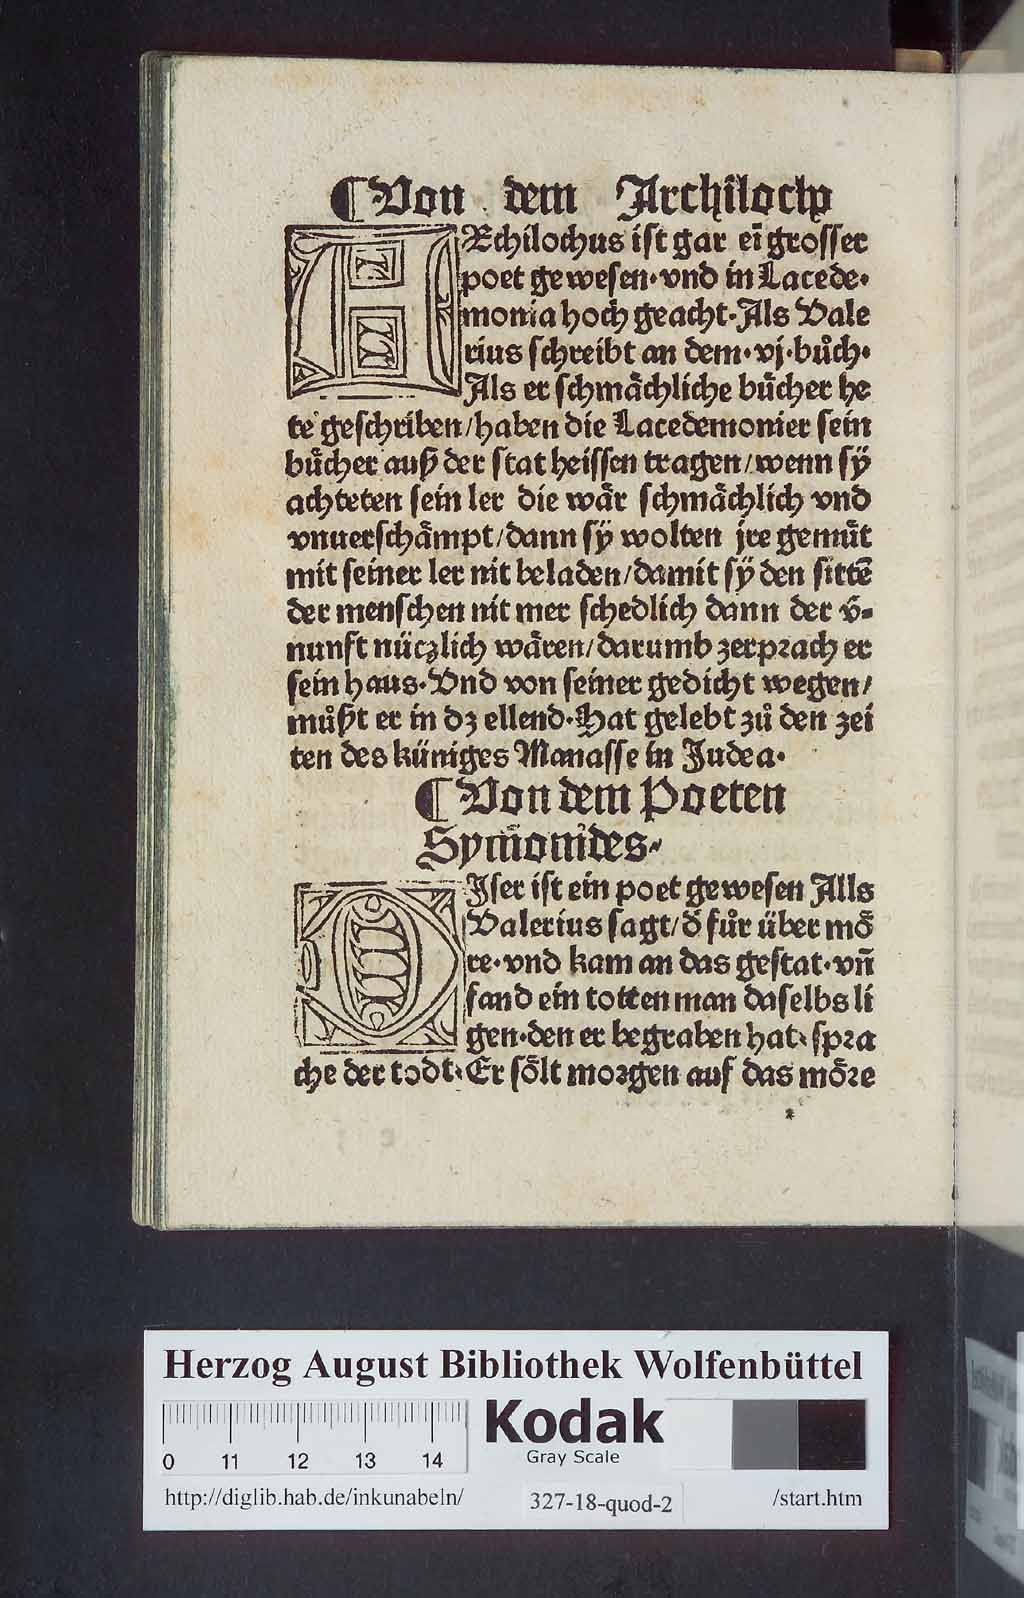 ¶ Von dem Archilocho
ARchilochus ist gar eī grosser
poet gewesen · vnd in Lacede·
monia hoch geacht · Als Vale
rius schreibt an dem · vj · bůch ·
Als er schmächliche bůcher he
te geschriben / haben die Lacedemonier sein
bůcher auß der stat heissen tragen / wenn sÿ
achteten sein ler die wär schmächlich vnd
vnuerschämpt / dann sÿ wolten jre gemüt
mit seiner ler nit beladen / damit sÿ den sittē
der menschen nit mer schedlich dann der v̄-
nunft nüczlich wären / darumb zerprach er
sein haus · Vnd von seiner gedicht wegen /
můßt er in dz ellend · Hat gelebt zů den zei
ten des küniges Manasse in Judea ·
¶ Von dem Poeten
Symonides ·
DIser ist ein poet gewesen Alls
Valerius sagt / d̄ fůr über mö
re · vnd kam an das gestat · vn̄
fand ein totten man daselbs li
gen · den er begraben hat · spra
che der todt · Er sölt morgen auf das möre
Herzog August Bibliothek Wolfenbüttel
0 11 12 13 14
Kodak
Gray Scale
http://diglib.hab.de/inkunabeln/ 327-18-quod-2 /start.htm